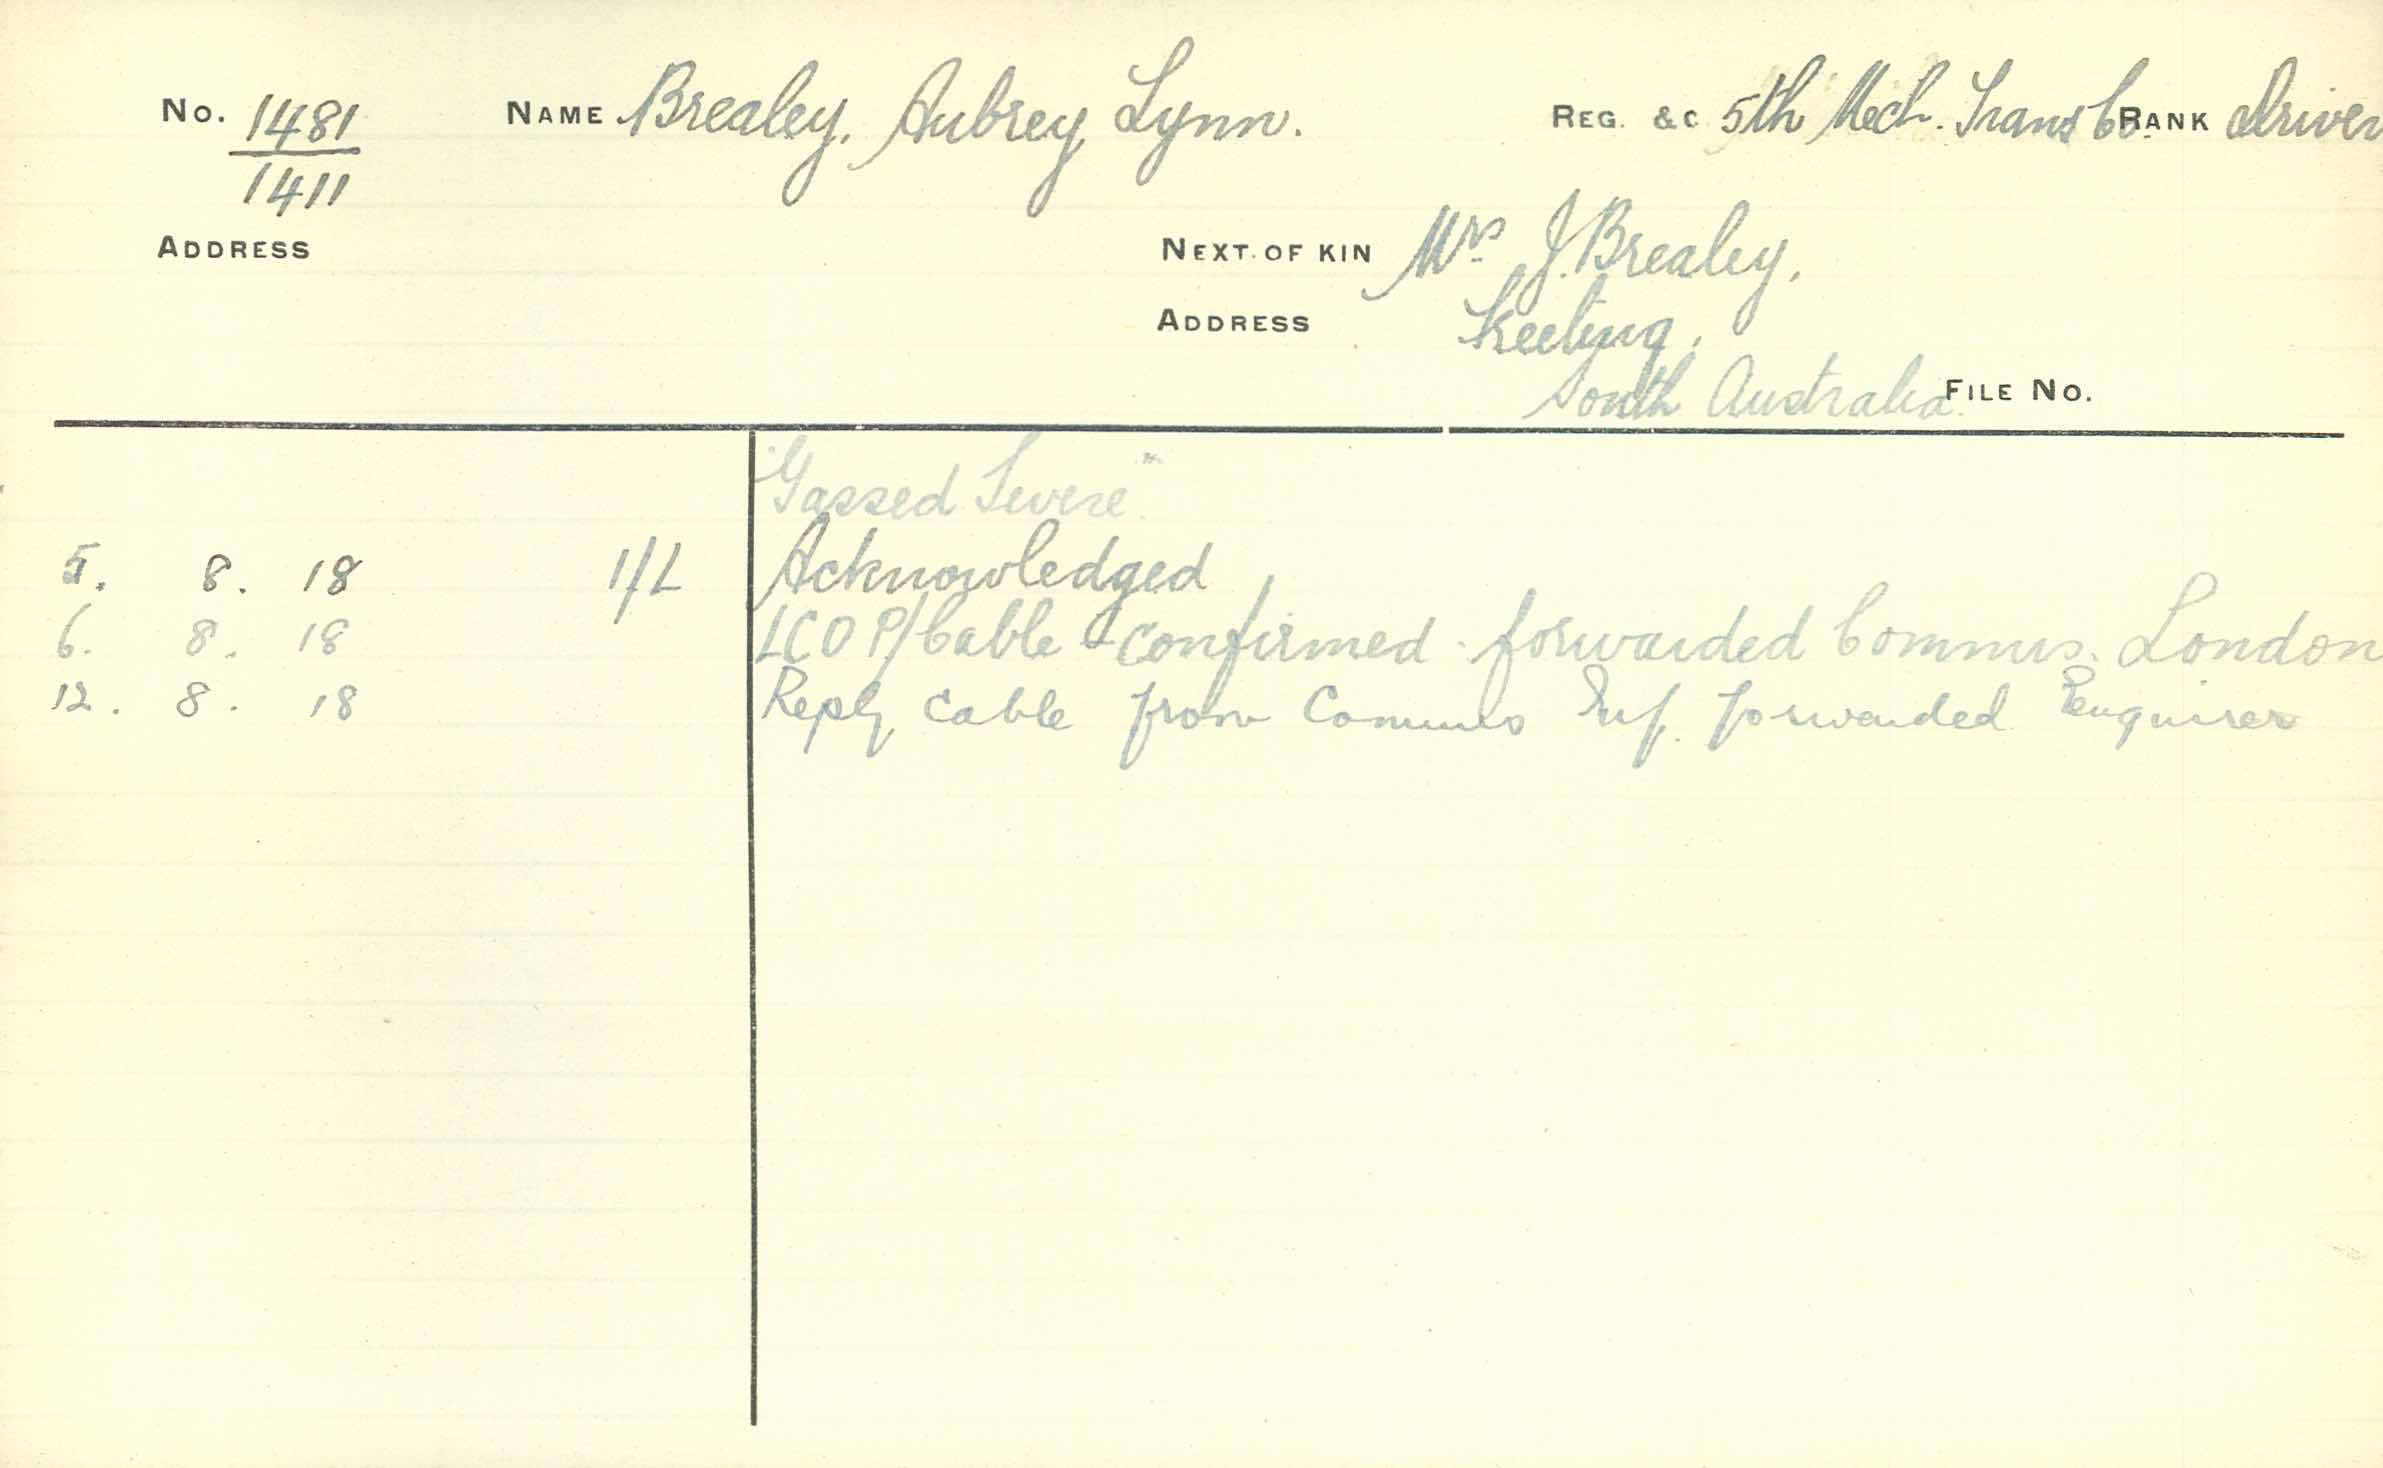 No. 1481 NAME Brealey, Aubrey Lynn. REG. &C 5th Mech. Trans Co. RANK Driver
1411
ADDRESS NEXT. OF KIN Mrs J. Brealey,
ADDRESS Keeling,
South Australia. FILE NO.
"Gassed Severe"
5. 8. 18 1/L Acknowledged
6. 8. 18 LCO P/Cable - confirmed - forwarded Commis. London
12. 8. 18 Reply cable from Commis Inf. forwarded Enquirer